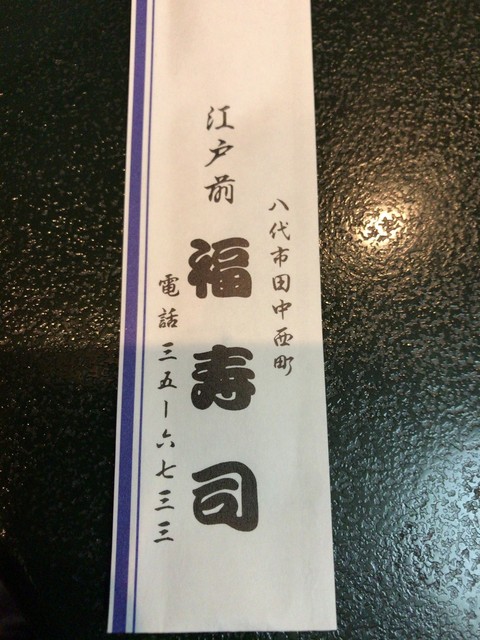 八代市田中西町
江戸前
福寿司
電話三五ー六七三三